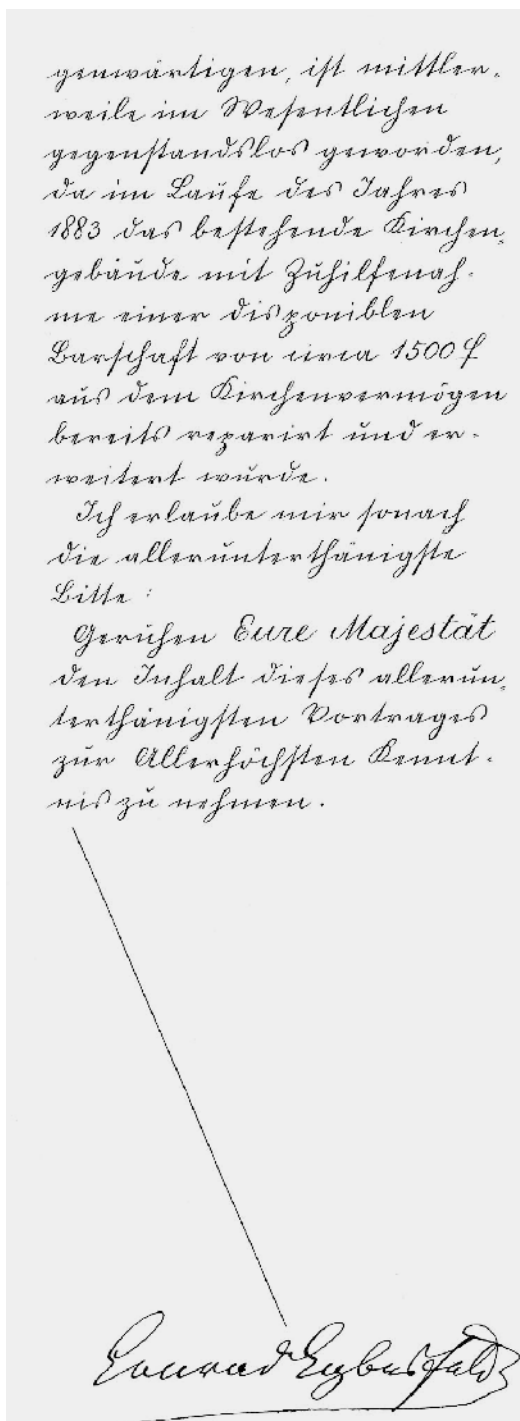 genwärtigen, ist mittler-
weile im Wesentlichen
gegenstandslos geworden,
da im Laufe des Jahres
1883 das bestehende Kirchen-
gebäude mit Zuhilfenah-
me einer disponiblen
Barschaft von circa 1500 f
aus dem Kirchenvermögen
bereits reparirt und er-
weitert wurde.
Ich erlaube mir sonach
die allerunterthänigste
Bitte:
Geruhen Eure Majestät
den Inhalt dieses allerun-
terthänigsten Vortrages
zur Allerhöchsten Kennt-
nis zu nehmen.
Conrad Eybesfeld